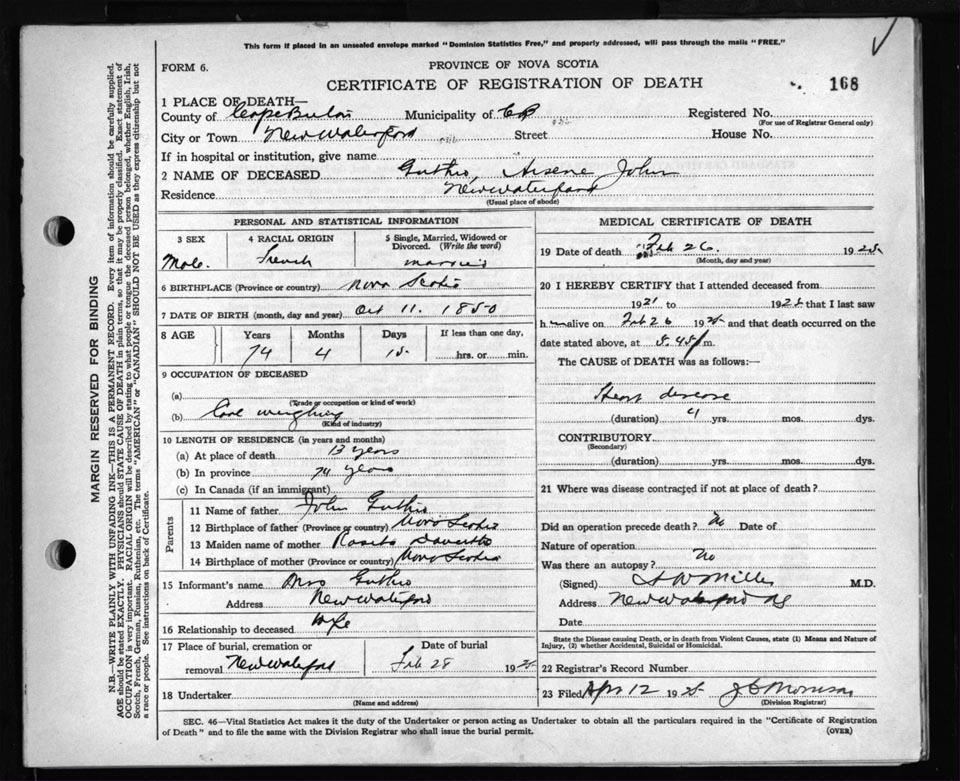 This form if placed in an unsealed envelope marked "Dominion Statistics Free," and properly addressed, will pass through the mails "FREE."
FORM 6.
PROVINCE OF NOVA SCOTIA
CERTIFICATE OF REGISTRATION OF DEATH
168
1 PLACE OF DEATH—
County of Cape Breton Municipality of CB Registered No.
(For use of Registrar General only)
City or Town New Waterford Street House No.
If in hospital or institution, give name
2 NAME OF DECEASED Guthro, Arsene John
Residence New Waterford
(Usual place of abode)
PERSONAL AND STATISTICAL INFORMATION
3 SEX 4 RACIAL ORIGIN 5 Single, Married, Widowed or Divorced. (Write the word)
Male. French married
6 BIRTHPLACE (Province or country) Nova Scotia
7 DATE OF BIRTH (month, day and year) Oct 11. 1850
8 AGE Years Months Days If less than one day,
74 4 15 hrs. or min.
9 OCCUPATION OF DECEASED
(a)
(Trade or occupation or kind of work)
(b) Coal weighing
(Kind of industry)
10 LENGTH OF RESIDENCE (in years and months)
(a) At place of death 13 years
(b) In province 74 years
(c) In Canada (if an immigrant)
Parents
11 Name of father John Guthro
12 Birthplace of father (Province or country) Nova Scotia
13 Maiden name of mother
14 Birthplace of mother (Province or country) Nova Scotia
15 Informant's name Mrs Guthro
Address New Waterford
16 Relationship to deceased wife
17 Place of burial, cremation or removal New Waterford
Date of burial
Feb 28 192
18 Undertaker
(Name and address)
MEDICAL CERTIFICATE OF DEATH
19 Date of death Feb 26 1925
(Month, day and year)
20 I HEREBY CERTIFY that I attended deceased from
1921 to 1925 that I last saw
h alive on Feb 26 1925 and that death occurred on
date stated above, at 8.45 m.
The CAUSE of DEATH was as follows:—
Heart disease
(duration) 4 yrs. mos. dys.
CONTRIBUTORY
(Secondary)
(duration) yrs. mos. dys.
21 Where was disease contracted if not at place of death?
Did an operation precede death? No Date of
Nature of operation
Was there an autopsy? No
(Signed) Miller M.D.
Address New Waterford NS
Date
State the Disease causing Death, or in death from Violent Causes, state (1) Means and Nature of Injury, (2) whether Accidental, Suicidal or Homicidal.
22 Registrar's Record Number
23 Filed Apr 12 1925 Morrison
(Division Registrar)
SEC. 46—Vital Statistics Act makes it the duty of the Undertaker or person acting as Undertaker to obtain all the particulars required in the "Certificate of Registration of Death" and to file the same with the Division Registrar who shall issue the burial permit.
(OVER)
MARGIN RESERVED FOR BINDING
N.B.—WRITE PLAINLY WITH UNFADING INK—THIS IS A PERMANENT RECORD. Every item of information should be carefully supplied.
AGE should be stated EXACTLY. PHYSICIANS should STATE CAUSE OF DEATH in plain terms, so that it may be properly classified. Exact statement of
OCCUPATION is very important. RACIAL ORIGIN will be described by stating to what people or tongue the deceased person belonged, whether English, Irish,
Scotch, French, German, Russian, Ruthenian, etc. The terms "AMERICAN" or "CANADIAN" SHOULD NOT BE USED as they express citizenship but not
a race or people. See instructions on back of Certificate.